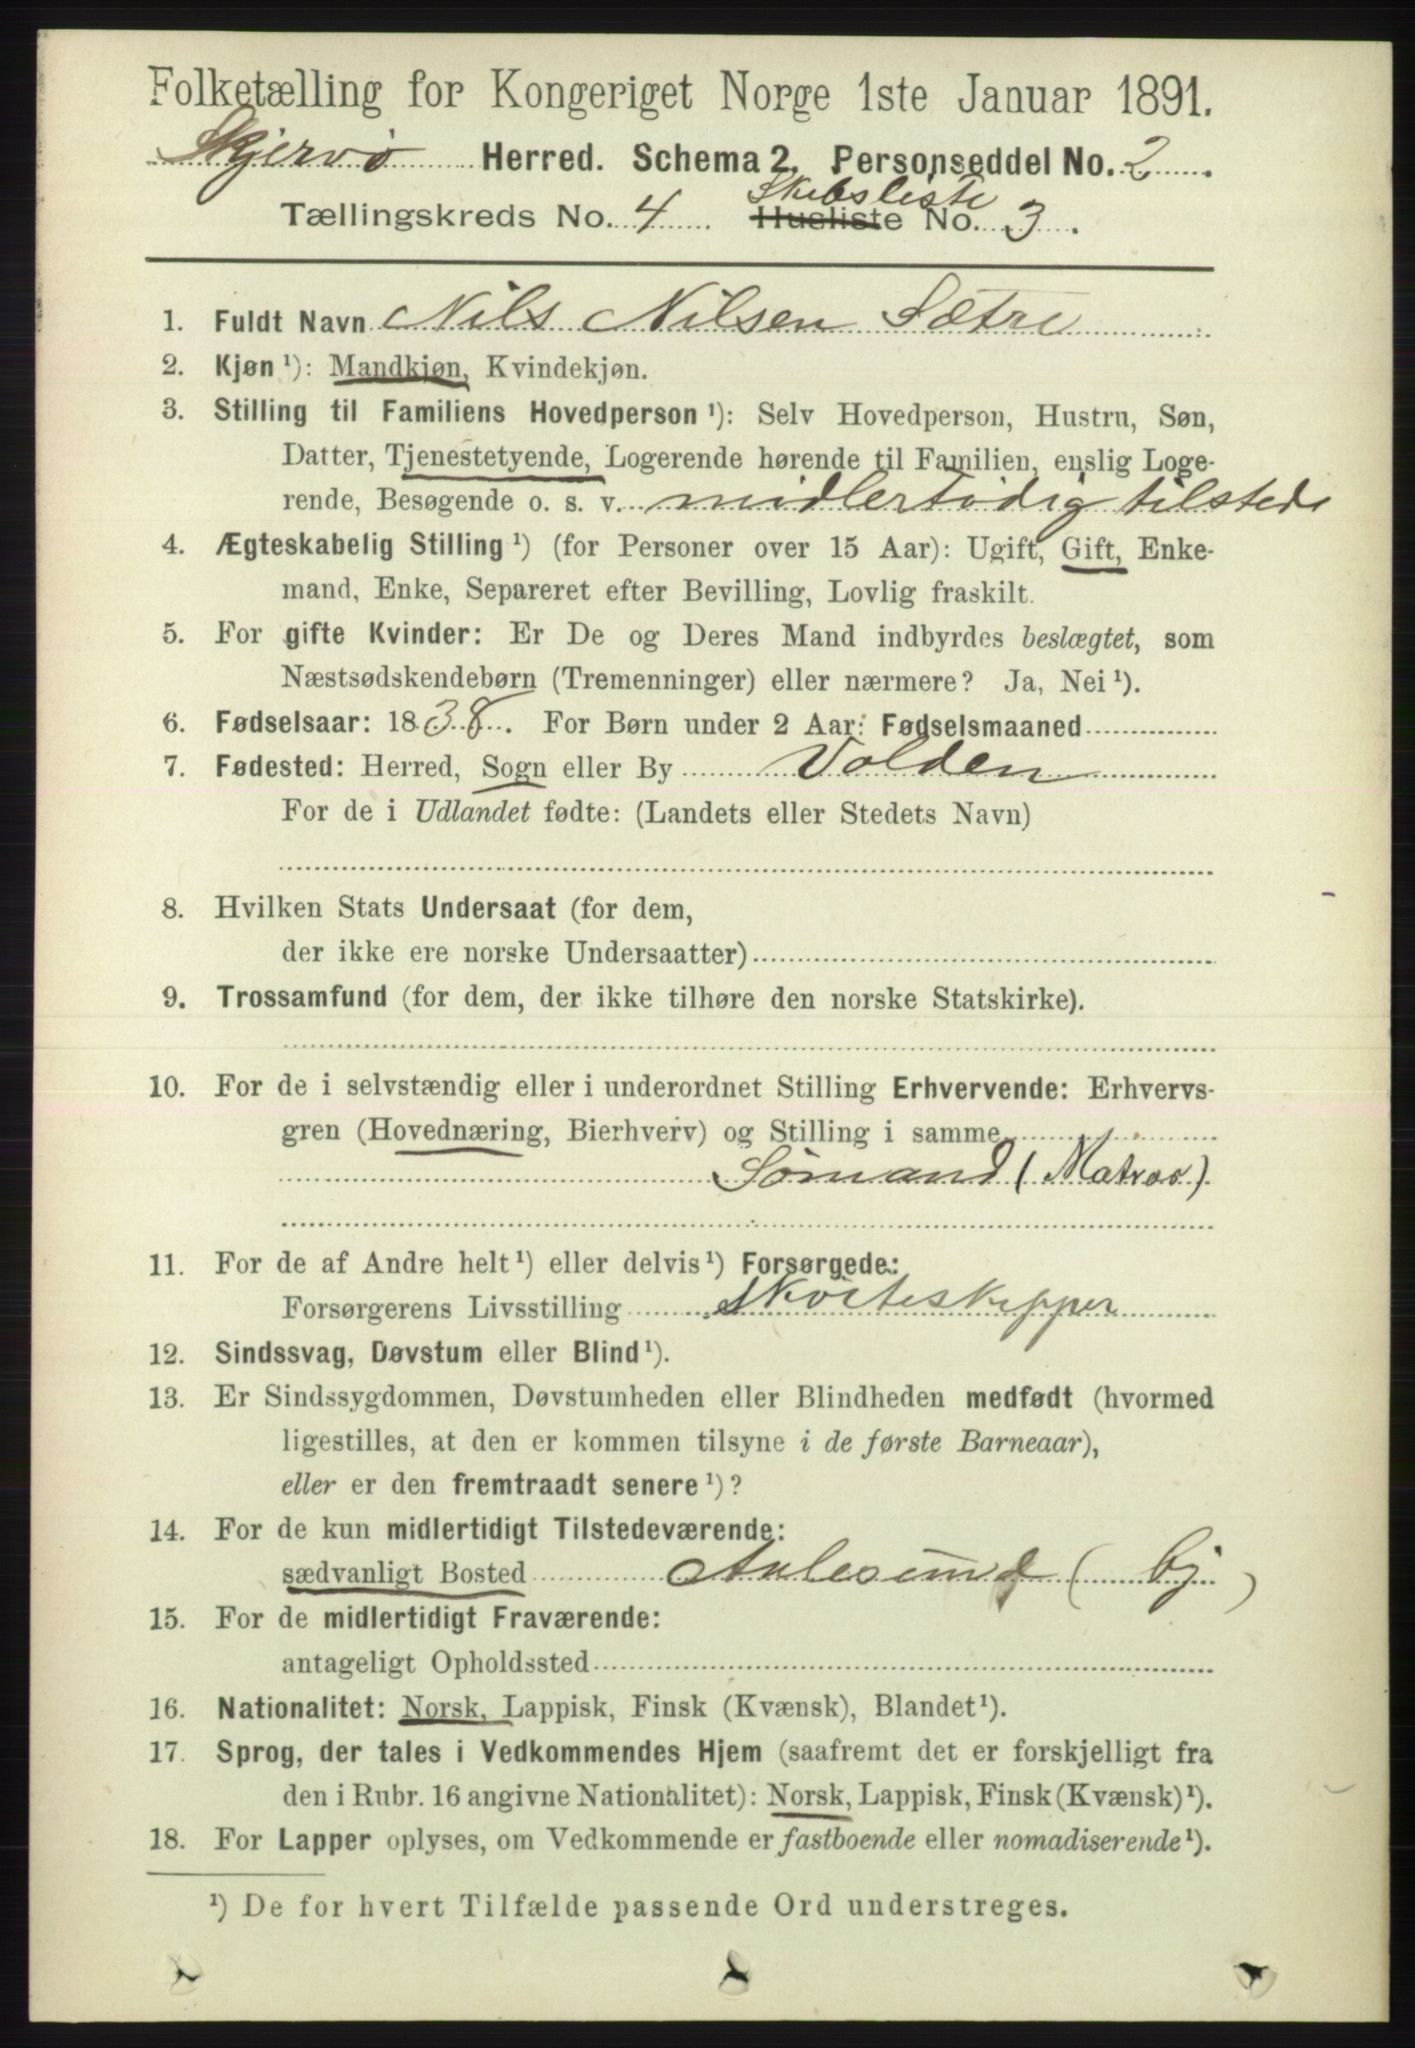 Folketælling for Kongeriget Norge 1ste Januar 1891.
Skjervø Herred. Schema 2. Personseddel No. 2.
Skibsliste
Tællingskreds No. 4 Husliste No. 3.
1. Fuldt Navn Nils Nilsen Sætre
2. Kjøn ¹): Mandkjøn, Kvindekjøn.
3. Stilling til Familiens Hovedperson ¹): Selv Hovedperson, Hustru, Søn,
Datter, Tjenestetyende, Logerende hørende til Familien, enslig Loge-
rende, Besøgende o. s. v. midlertidig tilstede
4. Ægteskabelig Stilling ¹) (for Personer over 15 Aar): Ugift, Gift, Enke-
mand, Enke, Separeret efter Bevilling, Lovlig fraskilt.
5. For gifte Kvinder: Er De og Deres Mand indbyrdes beslægtet, som
Næstsødskendebørn (Tremenninger) eller nærmere? Ja, Nei ¹).
6. Fødselsaar: 1838. For Børn under 2 Aar: Fødselsmaaned
7. Fødested: Herred, Sogn eller By Volden
For de i Udlandet fødte: (Landets eller Stedets Navn)
8. Hvilken Stats Undersaat (for dem,
der ikke ere norske Undersaatter)
9. Trossamfund (for dem, der ikke tilhøre den norske Statskirke).
10. For de i selvstændig eller i underordnet Stilling Erhvervende: Erhvervs-
gren (Hovednæring, Bierhverv) og Stilling i samme
Sømand (Matros)
11. For de af Andre helt ¹) eller delvis ¹) Forsørgede:
Forsørgerens Livsstilling Skøiteskipper
12. Sindssvag, Døvstum eller Blind ¹).
13. Er Sindssygdommen, Døvstumheden eller Blindheden medfødt (hvormed
ligestilles, at den er kommen tilsyne i de første Barneaar),
eller er den fremtraadt senere ¹)?
14. For de kun midlertidigt Tilstedeværende:
sædvanligt Bosted Aalesund (By)
15. For de midlertidigt Fraværende:
antageligt Opholdssted
16. Nationalitet: Norsk, Lappisk, Finsk (Kvænsk), Blandet ¹).
17. Sprog, der tales i Vedkommendes Hjem (saafremt det er forskjelligt fra
den i Rubr. 16 angivne Nationalitet): Norsk, Lappisk, Finsk (Kvænsk) ¹).
18. For Lapper oplyses, om Vedkommende er fastboende eller nomadiserende ¹).
¹) De for hvert Tilfælde passende Ord understreges.